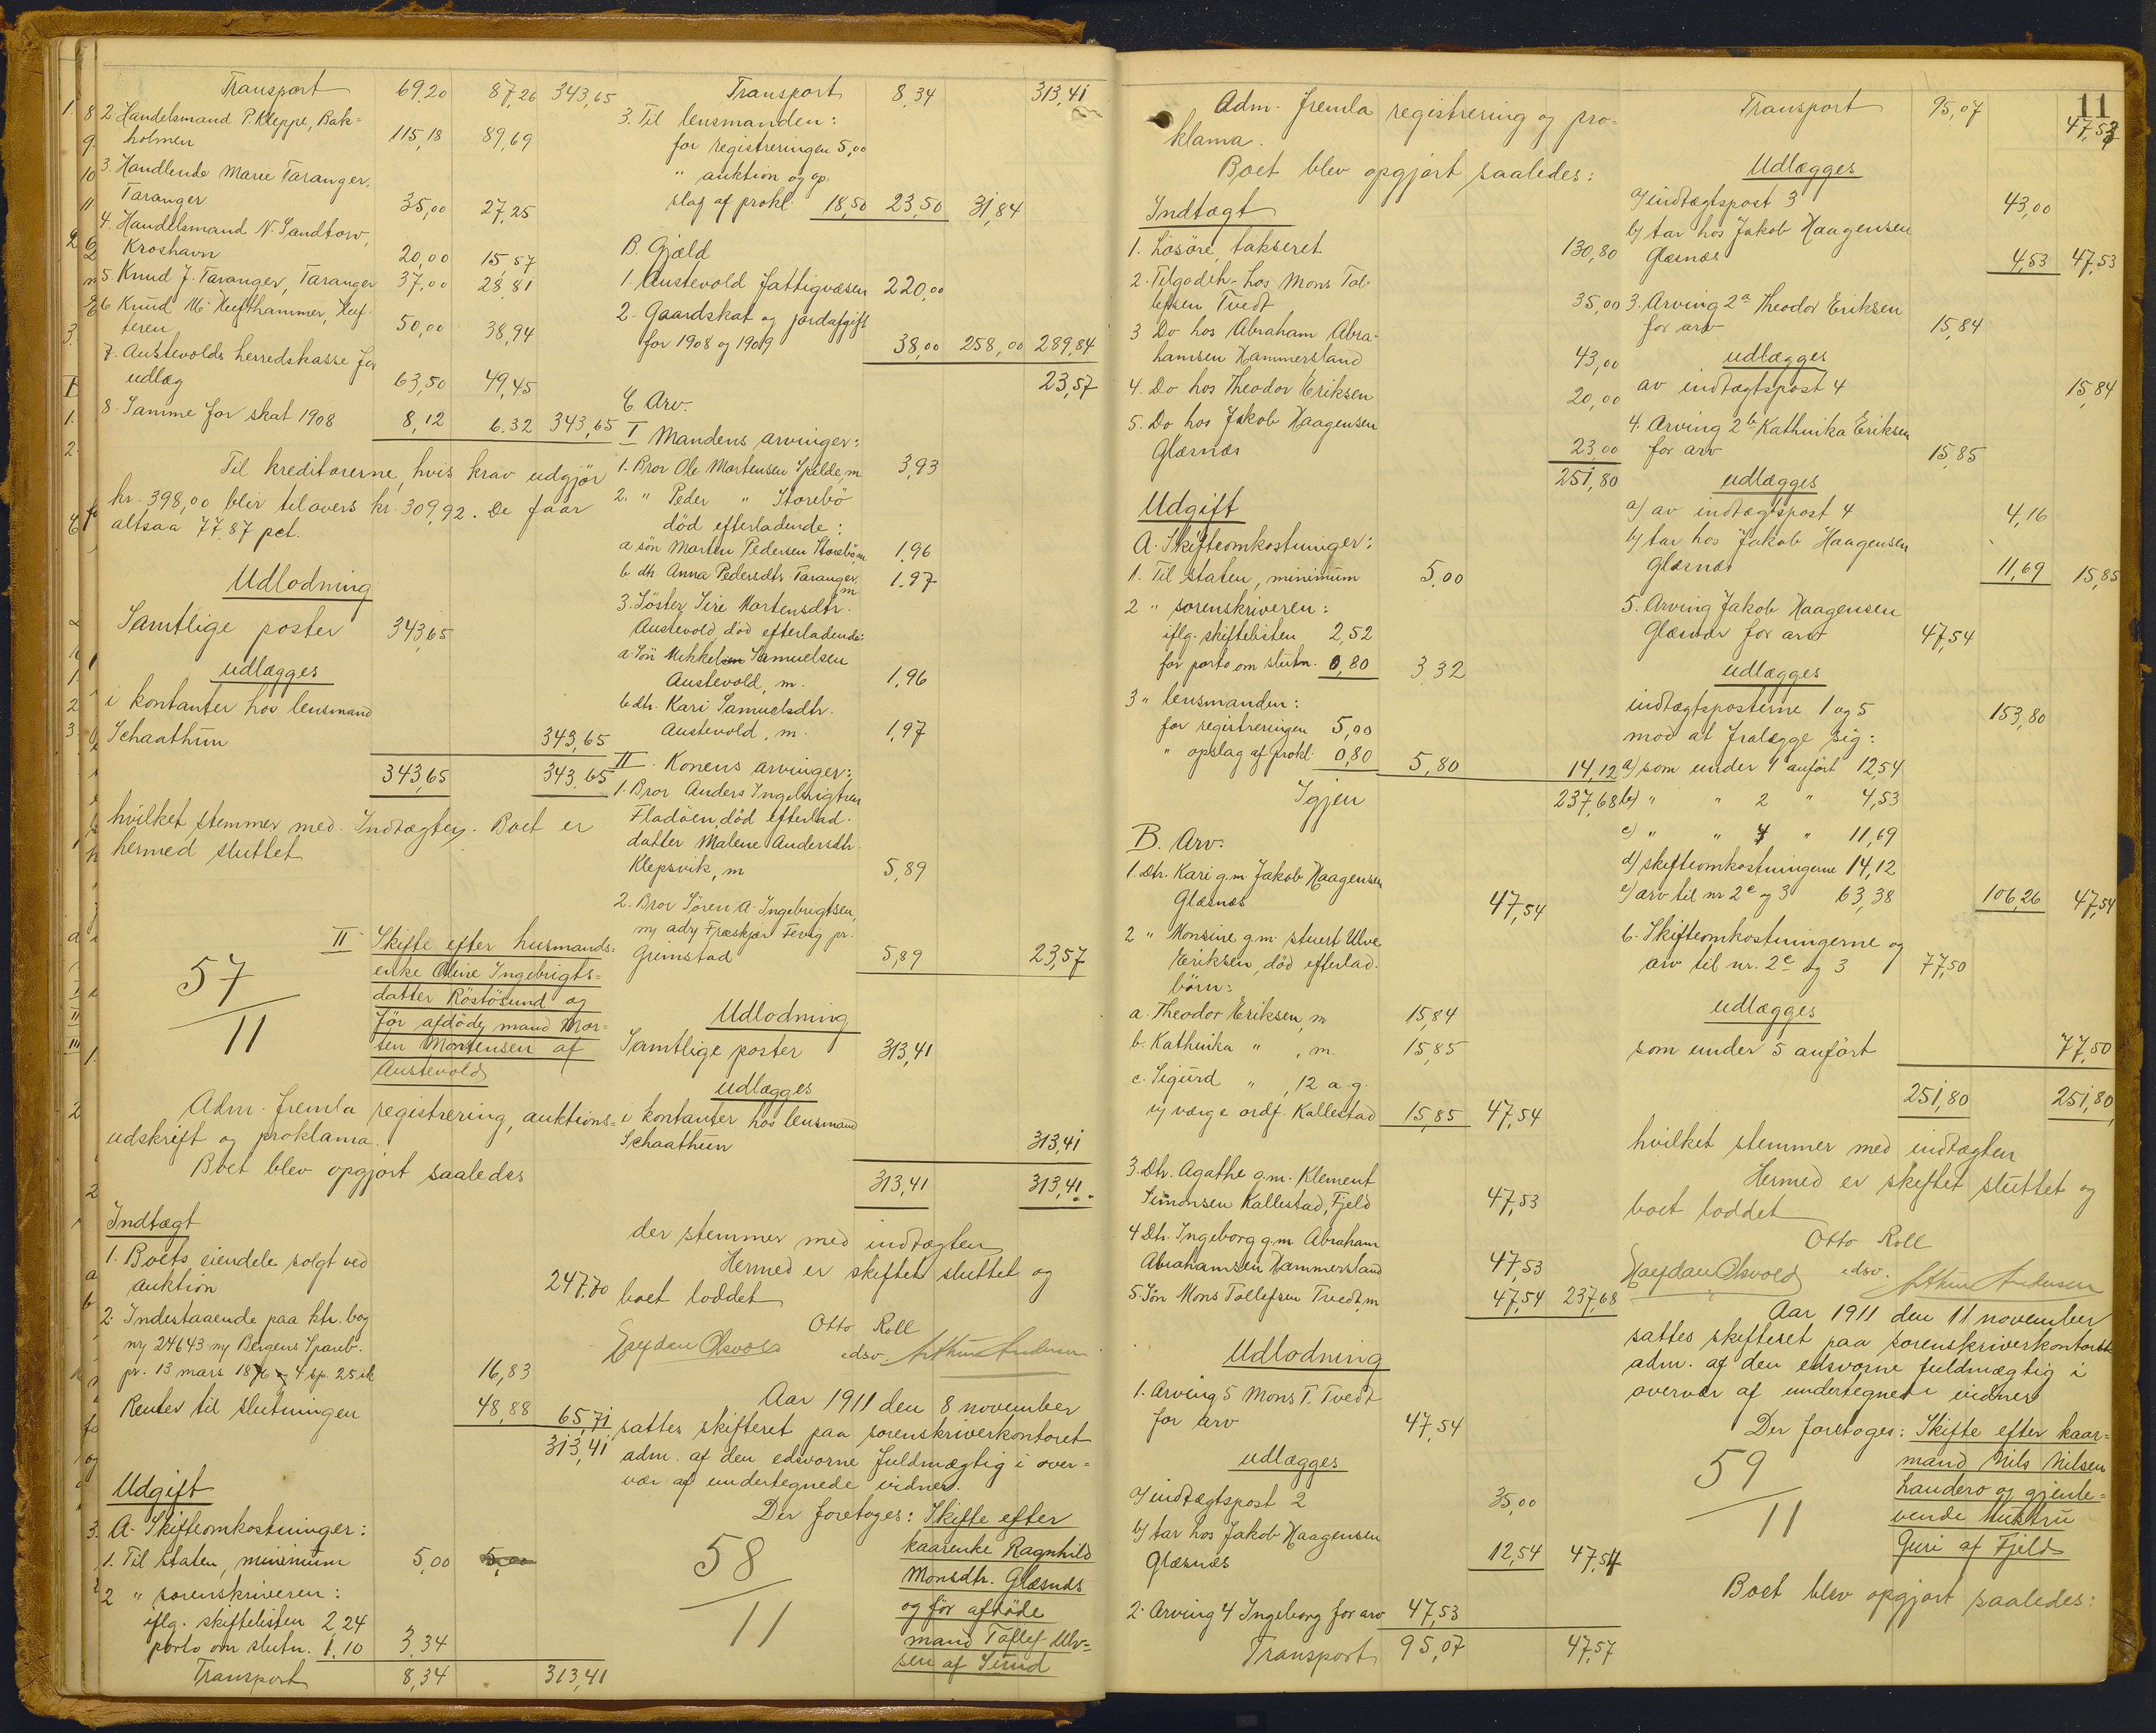 Transport 69,20 87,26 343,65
2 Handelsmand P. Kleppe, Bak=
holmen 115,18 89,69
3. Handlende Marie Taranger,
Taranger 35,00 27,25
4. Handelsmand N. Sandtorv,
Kroshavn 20,00 15,57
5 Knud J. Taranger, Taranger 37,00 28,81
6 Knud M. Hufthammer, Huf-
teren 50,00 38,94
7. Austevolds herredskasse for
udlæg 63,50 49,45
8. Samme for skat 1908 8,12 6.32 343,65
Til kreditorerne, hvis krav udgjør
kr. 398,00 blir tilovers kr. 309,92. De faar
altsaa 77.87 pct.
Udlodning
Samtlige poster 343,65
udlægges
i kontanter hos lensmand
Schaathun 343,65
343,65 343,65
hvilket stemmer med Indtægten. Boet er
hermed sluttet
57
11
II Skifte efter husmands=
enke Oline Ingebrigts=
datter Röstösund og
før afdøde mand Mor=
ten Mortensen af
Austevold
Adm. fremla registrering, auktions=
udskrift og proklama.
Boet blev opgjort saaledes
Indtægt
1. Boets eiendele solgt ved
auktion 247.70
2. Indestaaende paa ktr. bog
nr 24643 i Bergens Spareb.
pr. 13 mars 1876 4 sp. 25 sk 16,83
Renter til slutningen 48,88 65,71
313,41
Udgift
A. Skifteomkostninger:
1. Til staten, minimum 5,00 5,00
2 " sorenskriveren:
iflg. skiftelisten 2,24
porto om slutn. 1.10 3,34
Transport 8,34 313,41
Transport 8,34 313,41
3. Til lensmanden:
for registreringen 5,00
" auktion og op-
slag af prokl. 18,50 23,50 31,84
B. Gjæld
1. Austevold fattigvæsen 220,00
2. Gaardskat og jordafgift
for 1908 og 1909 38,00 258,00 289,84
23,57
C. Arv.
I Mandens arvinger:
1. Bror Ole Mortensen Spilde, m 3,93
2. " Peder " Storebö
död efterladende:
a. sön Morten Pedersen Storebö, m 1,96
b. dtr. Anna Pedersdtr. Taranger, m 1.97
3. Söster Siri Mortensdtr.
Austevold, död efterladende:
a. Sön Mikkel Samuelsen
Austevold, m. 1,96
b. dtr. Kari Samuelsdtr.
Austevold, m. 1,97
II. Konens arvinger:
1. Bror Anders Ingebrigtsen
Fladöen, död efterlad.
datter Malene Andersdtr.
Klepsvik, m 5,89
2. Bror Sören A. Ingebrigtsen,
adr Fræskjær Fevig pr.
Grimstad 5,89 23,57
Udlodning
Samtlige poster 313,41
udlægges
i kontanter hos lensmand
Schaathun 313,41
313,41 313,41
der stemmer med indtægten
Hermed er skiftet sluttet og
boet loddet
Otto Roll
edsv. Arthur Andersen
Aar 1911 den 8 november
sattes skifteret paa sorenskriverkontoret
adm. af den edsvorne fuldmægtig i over=
vær af undertegnede vidner.
Der foretoges: Skifte efter
58
11
kaarenke Ragnhild
Monsdtr. Glæsnæs
og før afdøde
mand Tollef Ulv=
sen af Sund
11
Adm. fremla registrering og pro=
klama.
Boet blev opgjort saaledes:
Indtægt
1. Lösöre, takseret 130,80
2. Tilgodeh. hos Mons Tol-
lefsen Tvedt 35,00
3 Do hos Abraham Abra-
hamsen Hammersland 43,00
4. Do hos Theodor Eriksen 20,00
5. Do hos Jakob Haagensen
Glæsnæs 23,00
251,80
Udgift
A. Skifteomkostninger:
1. Til staten, minimum 5,00
2 " sorenskriveren:
iflg. skiftelisten 2,52
for porto om slutn. 0,80 3,32
3 " lensmanden:
for registreringen 5,00
" opslag af prokl. 0,80 5,80 14,12
Igjen 237,68
B. Arv.
1. Dtr. Kari g.m. Jakob Haagensen
Glæsnæs 47,54
2 " Monsine g.m. Ulve
Eriksen, död efterlad.
börn:
a. Theodor Eriksen, m 15,84
b. Kathinka " , m. 15,85
c. Sigurd " , 12 a. g.
værge ordf. Kallestad 15,85 47,54
3. Dtr. Agathe g.m. Klement
Simonsen Kallestad, Fjeld 47,53
4 Dtr. Ingeborg g.m. Abraham
Abrahamsen Hammersland 47,53
5. Sön Mons Tollefsen Tvedt, m 47,54 237,68
Udlodning
1. Arving 5 Mons T. Tvedt
for arv 47,54
udlægges
a) indtægtspost 2 35,00
b) tar hos Jakob Haagensen
Glæsnæs 12,54 47,54
2. Arving 4 Ingeborg for arv 47,53
Transport 95,07 47,57
Transport 95,07 47,53
Udlægges
a) indtægtspost 3 43,00
b) tar hos Jakob Haagensen
Glæsnæs 4,53 47,53
3. Arving 2a Theodor Eriksen
for arv 15,84
udlægges
av indtægtspost 4 15,84
4. Arving 2b Kathinka Eriksen
for arv 15,85
udlægges
a) av indtægtspost 4 4,16
b) tar hos Jakob Haagensen
Glæsnæs 11,69 15,85
5. Arving Jakob Haagensen
Glæsnæs for arv 47,54
udlægges
indtægtsposterne 1 og 5 153,80
mod at fralægge sig:
a) som under 1 anført 12,54
b) " " 2 " 4,53
c) " " 4 " 11,69
d) skifteomkostningerne 14,12
e) arv til nr 2c og 3 63,38 106,26 47,54
6. Skifteomkostningerne og
arv til nr. 2c og 3 77,50
udlægges
som under 5 anført 77,50
251,80 251,80
hvilket stemmer med indtægten
Hermed er skiftet sluttet og
boet loddet
Otto Roll
edsv. Arthur Andersen
Aar 1911 den 11 november
sattes skifteret paa sorenskriverkontoret
adm. af den edsvorne fuldmægtig i
overvær af undertegnede vidner
Der foretoges: Skifte efter kaar=
59
11
mand Nils Nilsen
Landero og gjenle=
vende hustru
Guri af Fjeld
Boet blev opgjort saaledes: